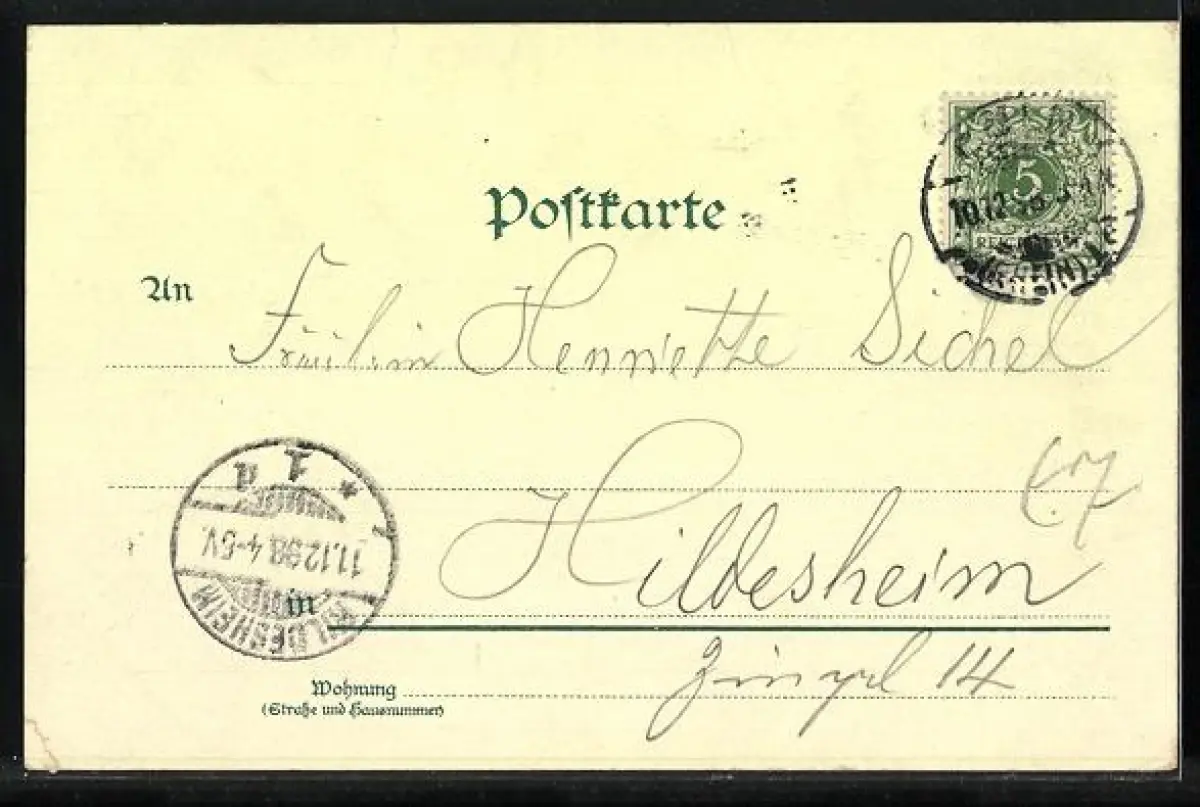 Postkarte
5
REICHSPOST
10.12.98
An
Fräulein Henriette Sichel
1 d
11.12.98. 4-5V.
HILDESHEIM
Hildesheim
in
Zingel 14
Wohnung
(Straße und Hausnummer)